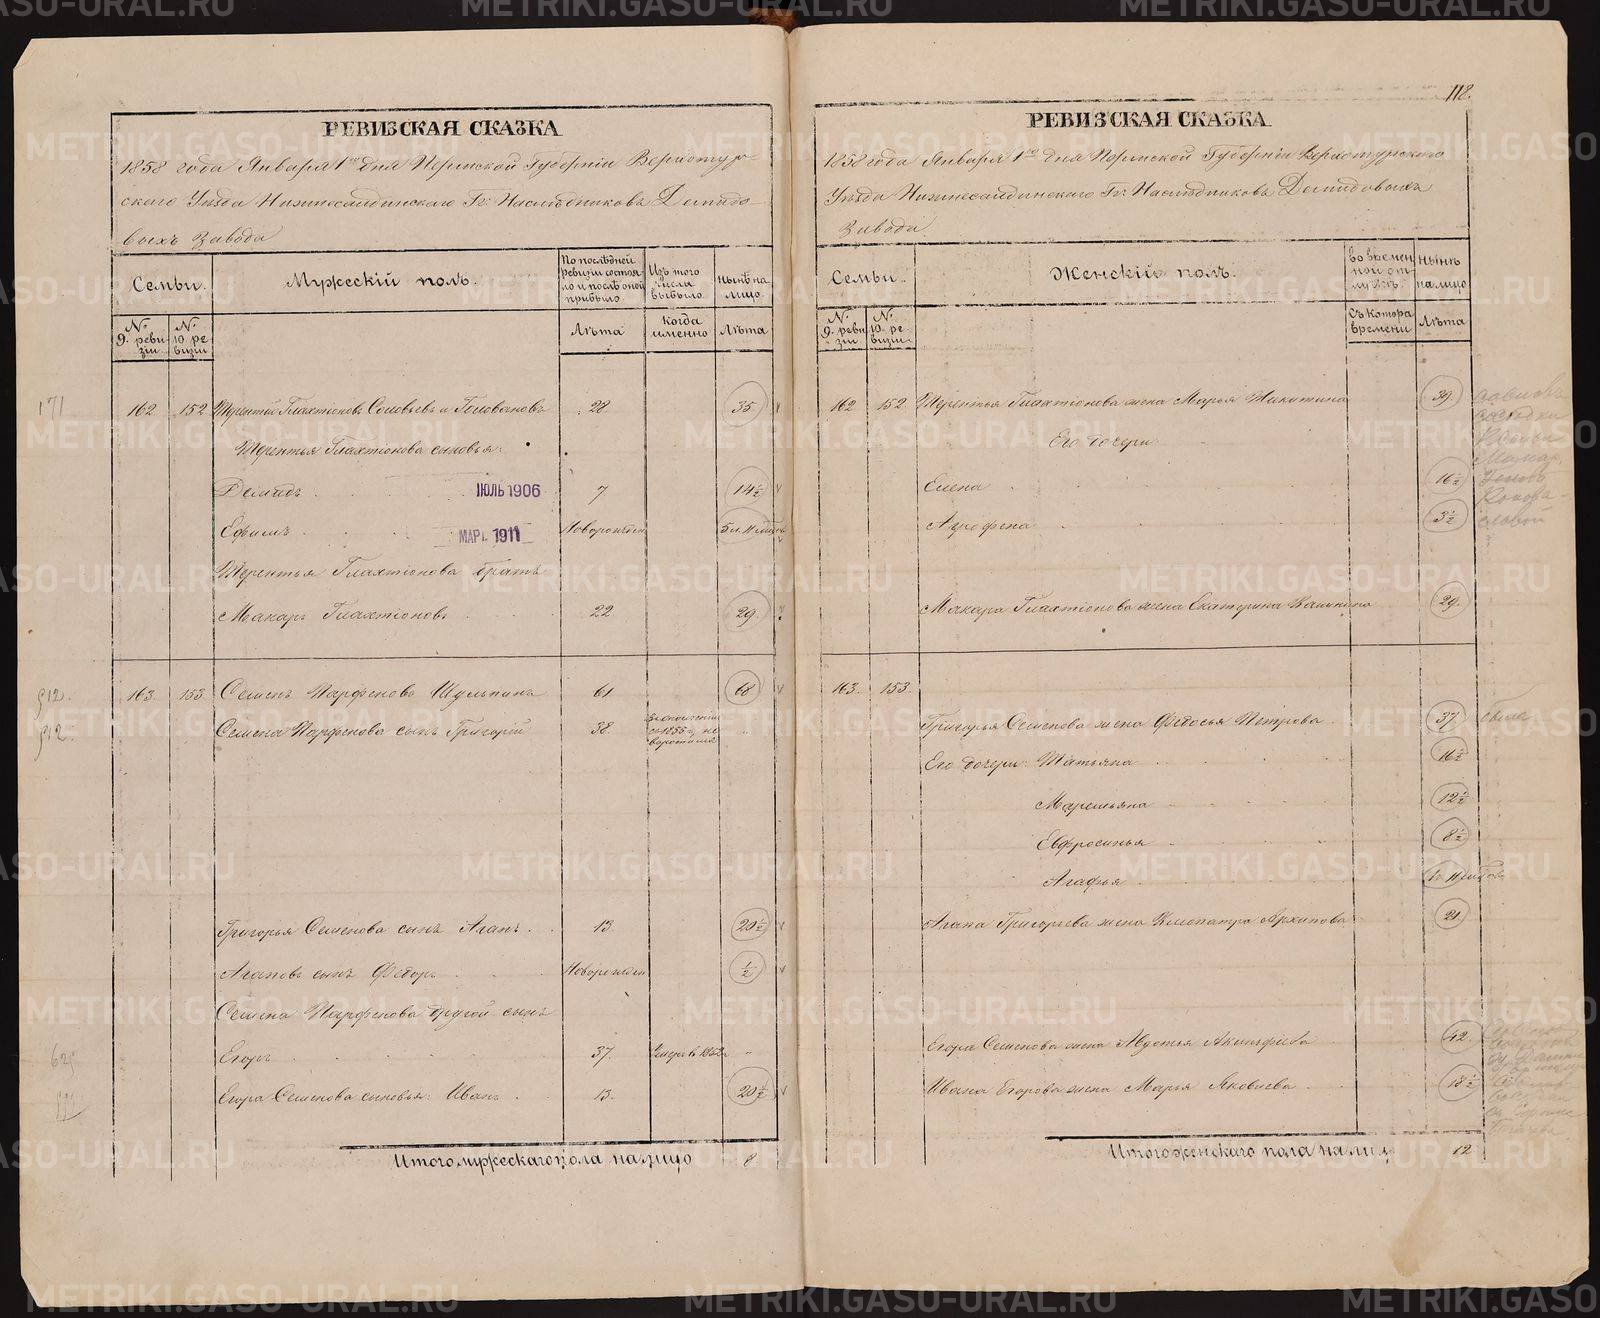 РЕВИЗСКАЯ СКАЗКА
1858 года Января 1го дня Пермской Губерніи Верхотур-
скаго Уѣзда Нижнесалдинскаго Гг. Наслѣдниковъ Демидо-
выхъ Завода
Семьи.
Мужескій полъ.
По последней ревизіи состоя-ло и послѣ оной прибыло
Изъ того числа выбыло
Нынѣ на лицо
№ 9. реви-зіи
№ 10 ре-визіи
Лѣта
когда именно
Лѣта
171
162 152 Терентій Галахтіоновъ Соловьевъ и Головановъ 28. 35
Терентья Галахтіонова сыновья:
Демидъ ІЮЛЬ 1906 7 14½
Ефимъ МАР. 1911 Новорожден
Терентья Галахтіонова братъ
Макаръ Галахтіоновъ 22 29.
912. 163 153 Семенъ Парфеновъ Шульпинъ 61 68
912 Семена Парфенова сынъ Григорій 38.
Григорья Семенова сынъ Агапъ. 13. 20½
Агаповъ сынъ Федоръ Новорожден ½
Семена Парфенова другой сынъ
Егоръ 37. Умеръ в 1852г
Егора Семенова сыновья: Иванъ 13. 20½
Итого мужескаго пола на лицо 8
112.
РЕВИЗСКАЯ СКАЗКА
1858 года Января 1го дня Пермской Губерніи Верхотурскаго
Уѣзда Нижнесалдинскаго Гг. Наслѣдниковъ Демидовыхъ
Завода
Семьи.
Женскій полъ.
Во времен-ной от-лучкѣ.
Нынѣ на лицо
№ 9. реви-зіи
№ 10. ре-визіи
Съ котора времени
Лѣта
162 152 Терентья Галахтіонова жена Марья Никитина 39.
Его дочери
Елена 16½
Агрофена 3½
Макара Галахтіонова жена Екатерина Калинина 29.
163. 153.
Григорья Семенова жена Федосья Петрова 37.
Его дочери: Татьяна 16½
Маремьяна 12½
Евфросинья 8½
Агафья
Агапа Григорьева жена Клеопатра Архипова 21
Егора Семенова жена Авдотья Акинфіева 42.
Ивана Егорова жена Марья Яковлева 18½
Итого женскаго пола на лиц 12
METRIKI.GASO-URAL.RU